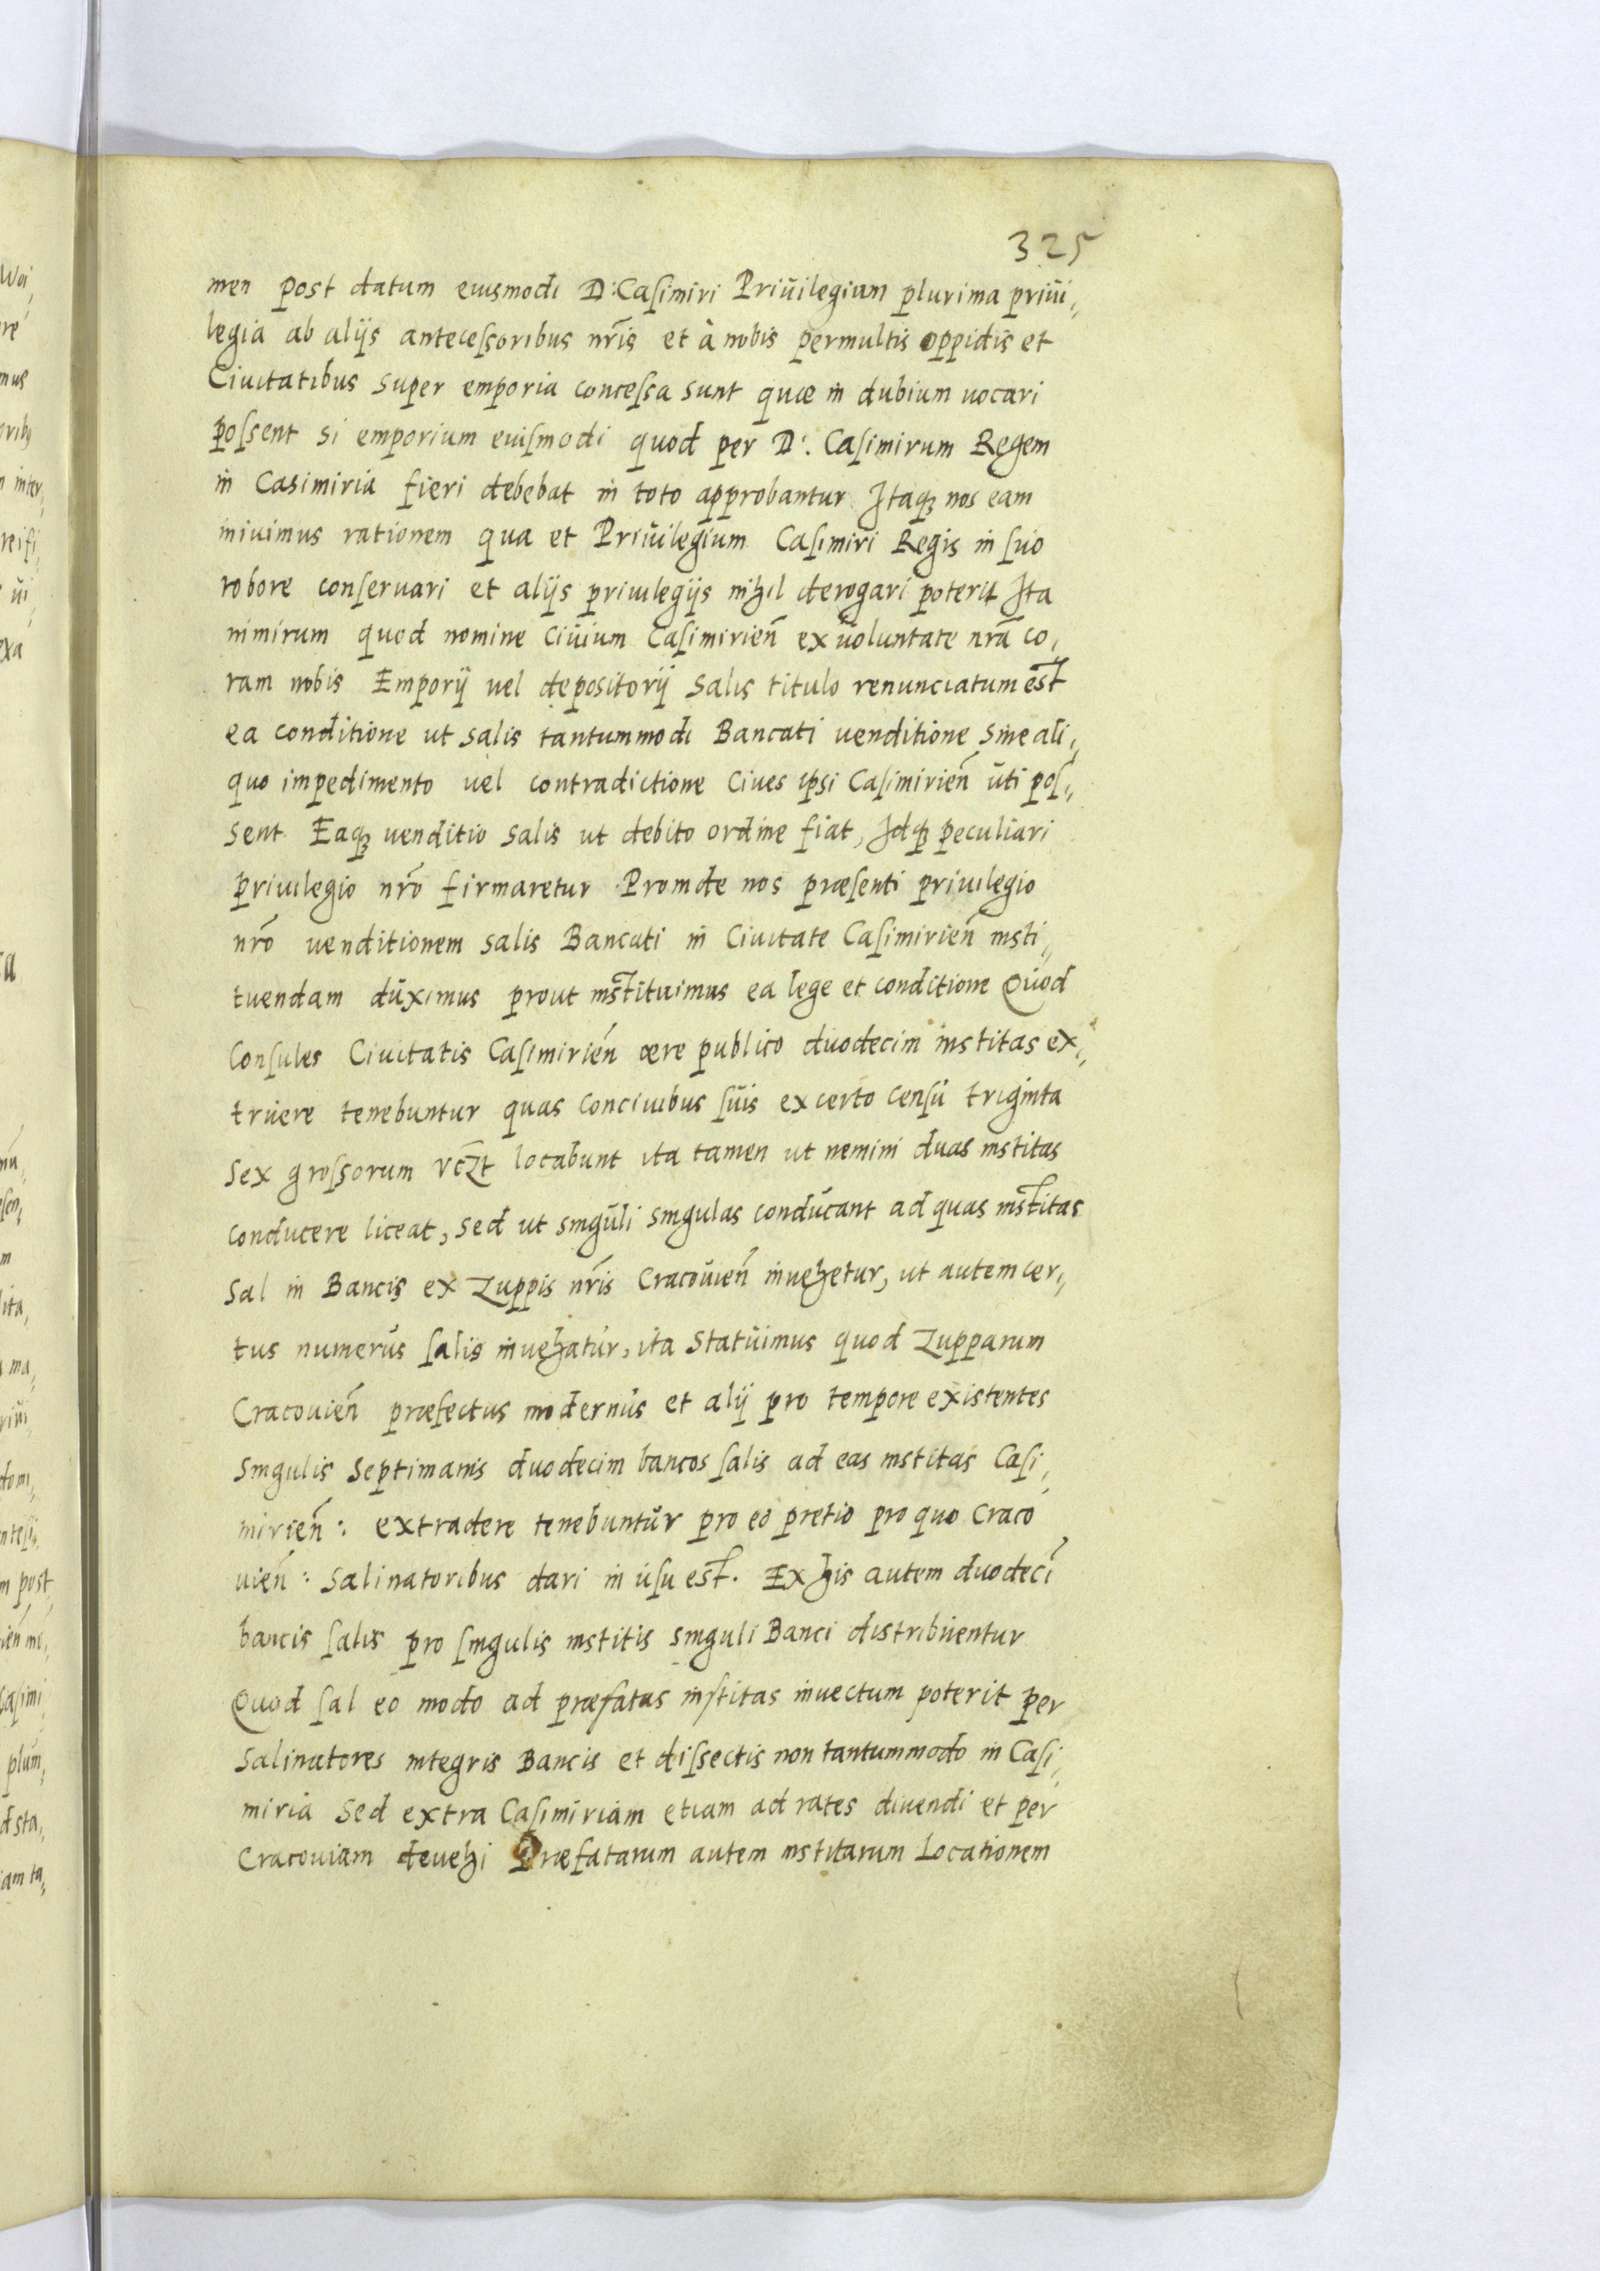 325
men post datum euismodi D: Casimiri Priuilegium plurima priui,,
legia ab alijs antecessoribus nr̃is et à nobis permultis oppidis et
Ciuitatibus super emporia concessa sunt quæ in dubium uocari
possent si emporium euismodi quod per D: Casimirum Regem
in Casimiria fieri debebat in toto approbantur Itaqȝ nos eam
iniuimus rationem qua et Priuilegium Casimiri Regis in suo
robore conseruari et alijs priuilegijs nihil derogari poterit Ita
nimirum quod nomine Ciuium Casimirien̄ ex uoluntate nr̃a co,,
ram nobis Emporij uel depositorij Salis titulo renunciatum est
ea conditione ut salis tantummodi Bancati uenditione sine ali,,
quo impedimento uel contradictione Ciues ipsi Casimirien̄ uti pos,,
sent Eaqȝ uenditio salis ut debito ordine fiat, Idqȝ peculiari
priuilegio nr̃o firmaretur Proinde nos præsenti priuilegio
nr̃o uenditionem salis Bancati in Ciuitate Casimirien̄ insti,,
tuendam duximus prout instituimus ea lege et conditione Quod
Consules Ciuitatis Casimirien̄ ære publico duodecim institas ex,,
truere tenebuntur quas Conciuibus suis ex certo censu triginta
Sex grossorum vczt locabunt ita tamen ut nemini duas institas
conducere liceat, sed ut singuli singulas conducant ad quas institas
Sal in Bancis ex Zuppis nr̃is Cracouien̄ inuehetur, ut autem cer,,
tus numerus salis inuehatur, ita Statuimus quod Zupparum
Cracouien̄ præfectus modernus et alij pro tempore existentes
Singulis Septimanis duodecim bancos salis ad eas institas Casi,,
mirien̄: extradere tenebuntur pro eo pretio pro quo Craco
uien̄: Salinatoribus dari in usu est. Ex his autem duodecī
bancis salis pro singulis institis singuli Banci distribuentur
Quod sal eo modo ad præfatas institas inuectum poterit per
Salinatores integris Bancis et dissectis non tantummodo in Casi,,
miria Sed extra Casimiriam etiam ad rates diuendi et per
Cracouiam deuehi Præfatarum autem institarum Locationem